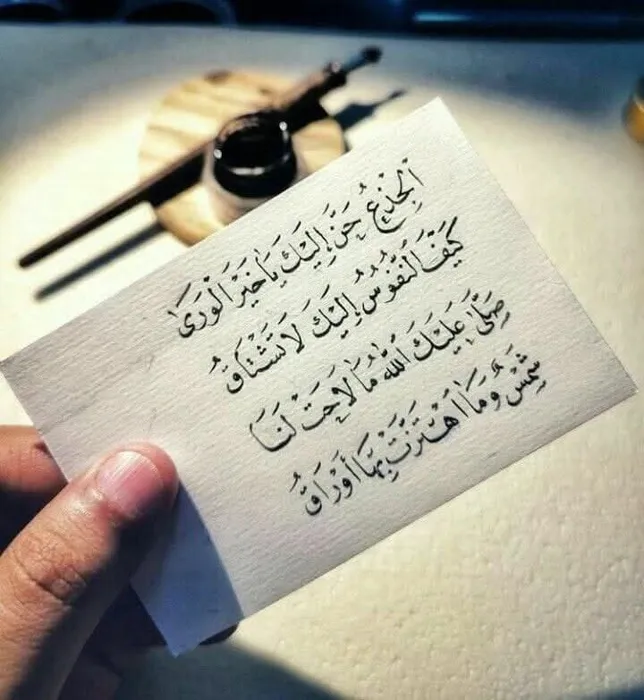 الْجِذْعُ حَنَّ إِلَيْكَ يَا خَيْرَ الْوَرَىٰ
كَيْفَ النُّفُوسُ إِلَيْكَ لَا تَشْتَاقُ
صَلَّىٰ عَلَيْكَ اللهُ مَا لَاحَتْ لَنَا
شَمْسٌ وَمَا اهْتَزَّتْ بِهَا أَوْرَاقُ